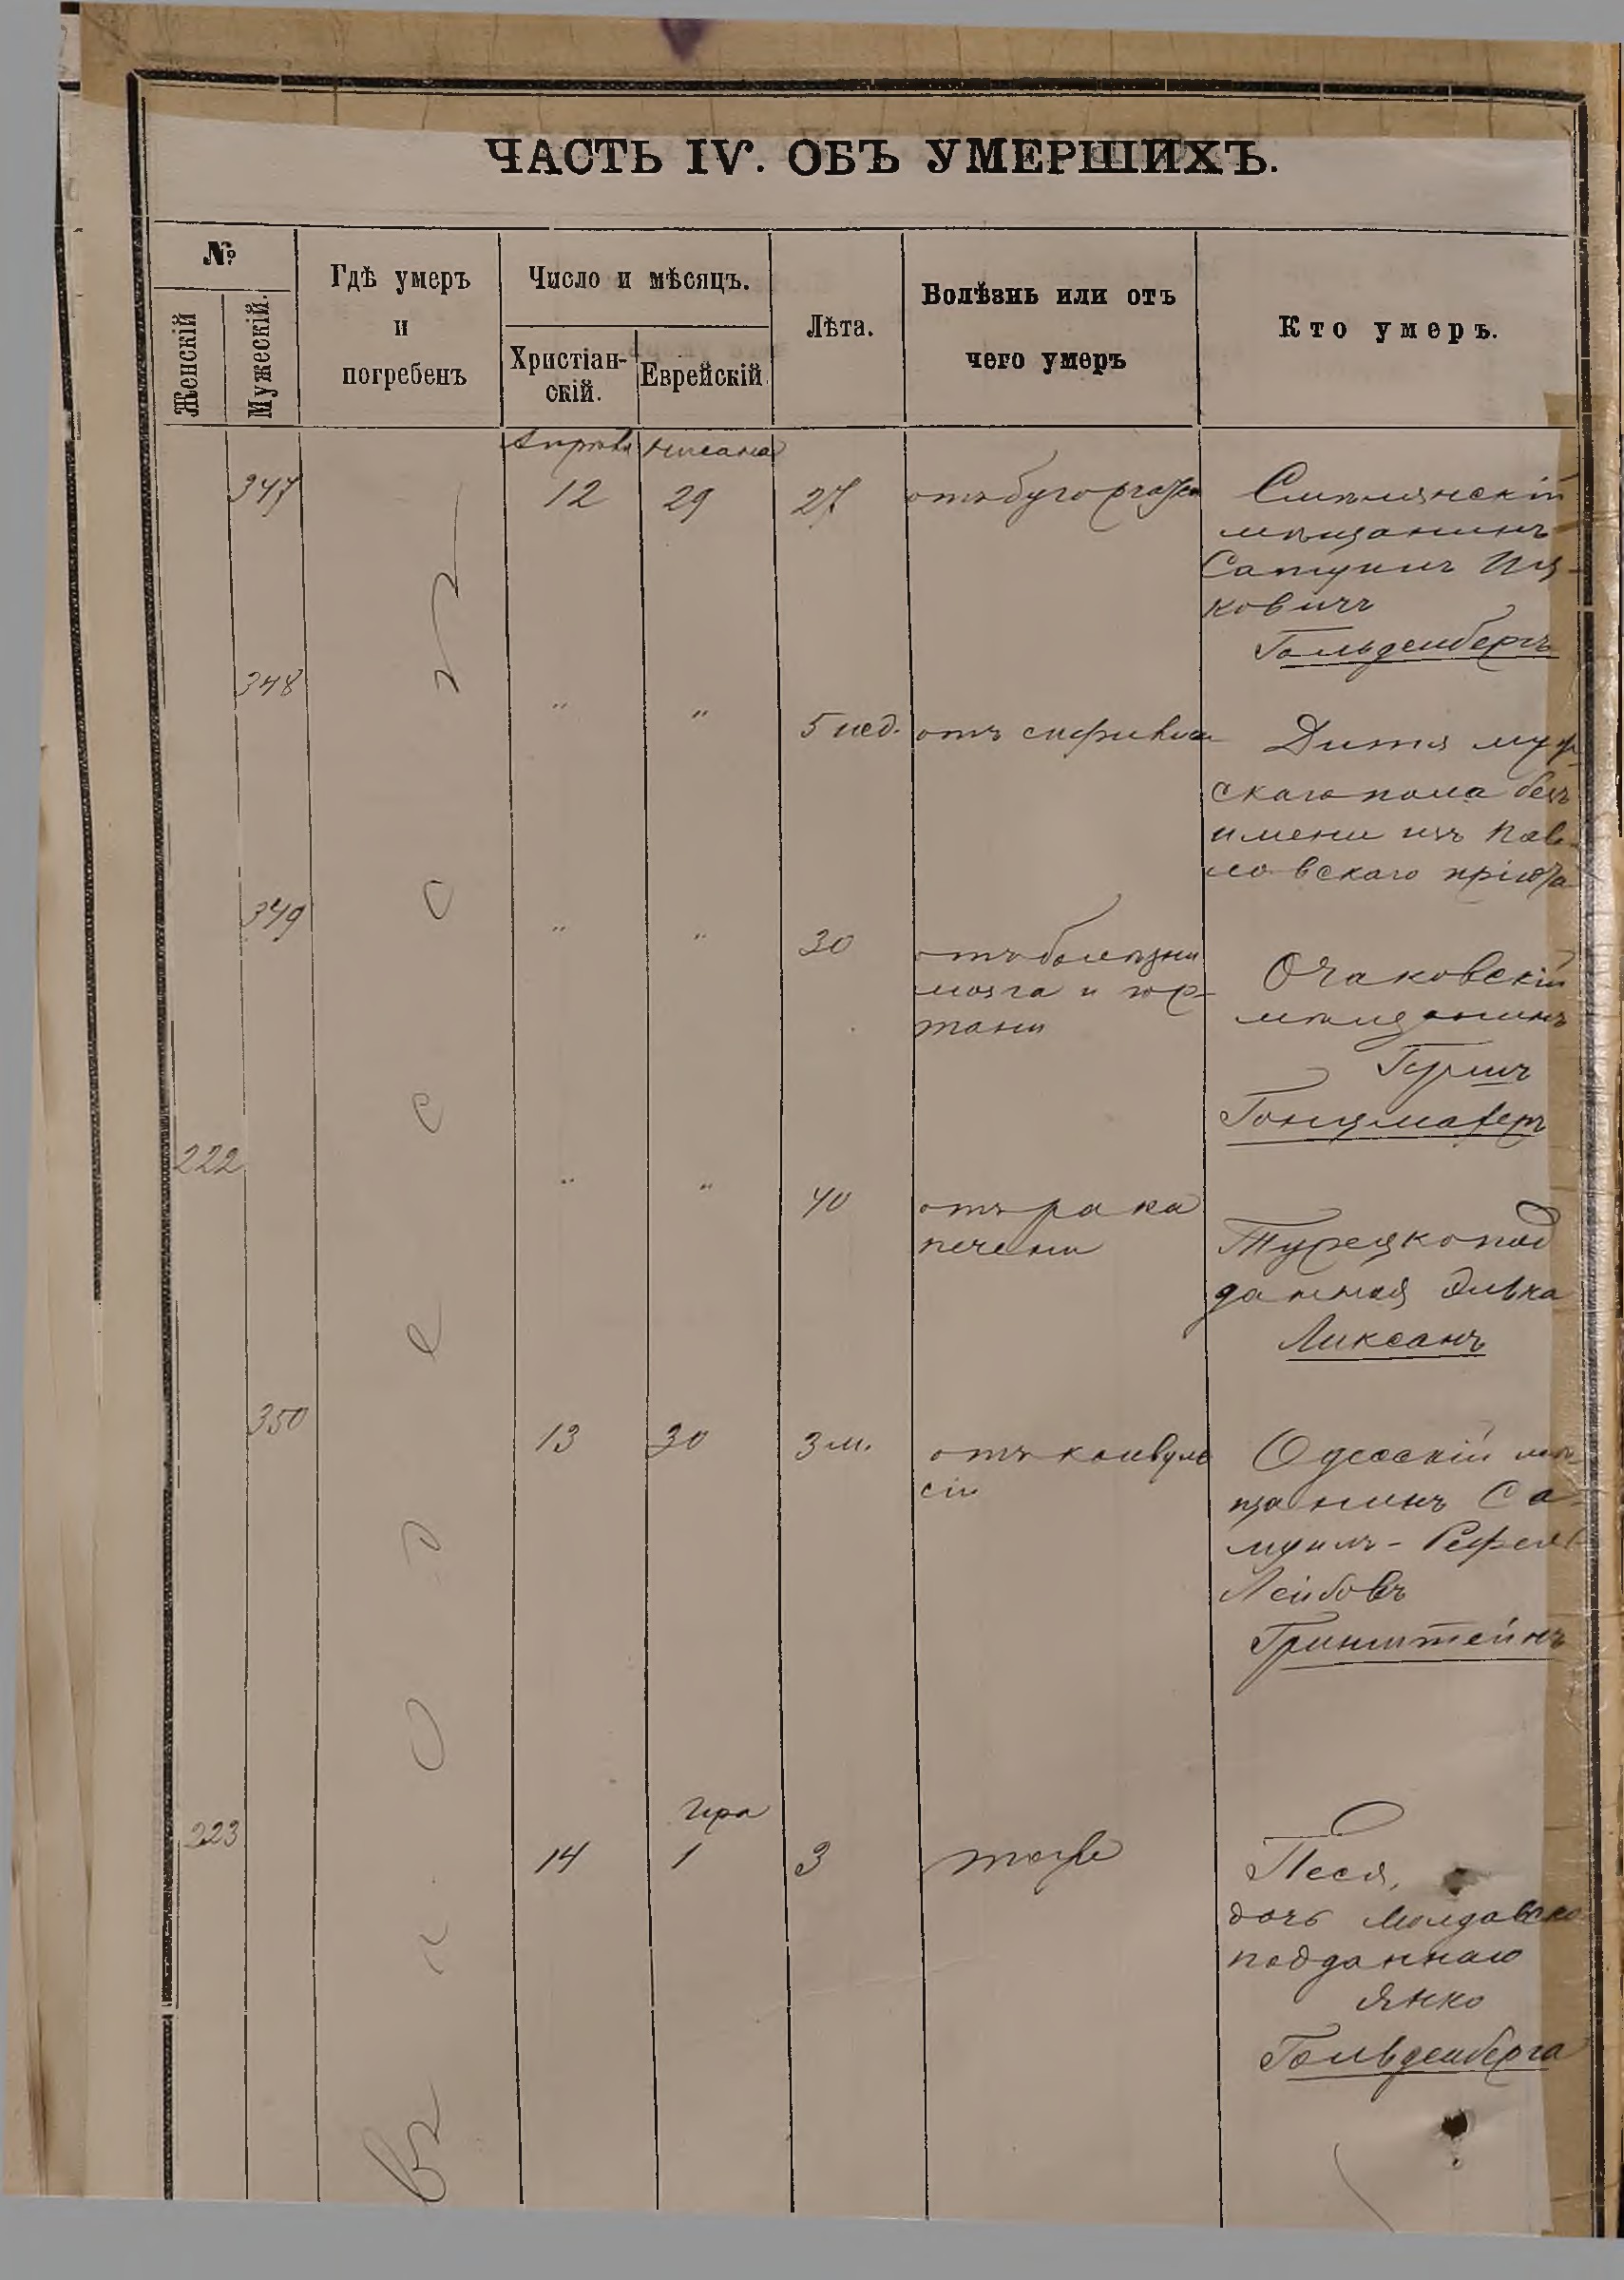 ЧАСТЬ IV. ОБЪ УМЕРШИХЪ.
№
Женскій
Мужескій.
Гдѣ умеръ
и
погребенъ
Число и мѣсяцъ.
Христіан-
скій.
Еврейскій.
Лѣта.
Болѣзнь или отъ
чего умеръ
Кто умеръ.
Апрѣля Нисана
347 12 29 27 отъ бугорчатки
мѣщанинъ
Иц-
ковичъ
Гольденбергъ
348 " " 5 нед. отъ сифилиса
Дитя муж
скаго пола безъ
имени изъ Пав-
ловскаго пріюта
349 " " 30 отъ болѣзни
мозга и гор-
тани
Очаковскій
мѣщанинъ
Гонцмахеръ
222 " " 40 отъ рака
печени
Турецкопод
данная
Ликсанъ
350 13 30 3 м. отъ конвуль
сій
Одесскій мѣ
щанинъ Са-
муилъ-
Лейбовъ
Гринштейнъ
Ира
223 14 1 3 тоже
Песя,
дочь молдавско
подданнаго
Янко
Гольденберга
Въ г. Одессѣ